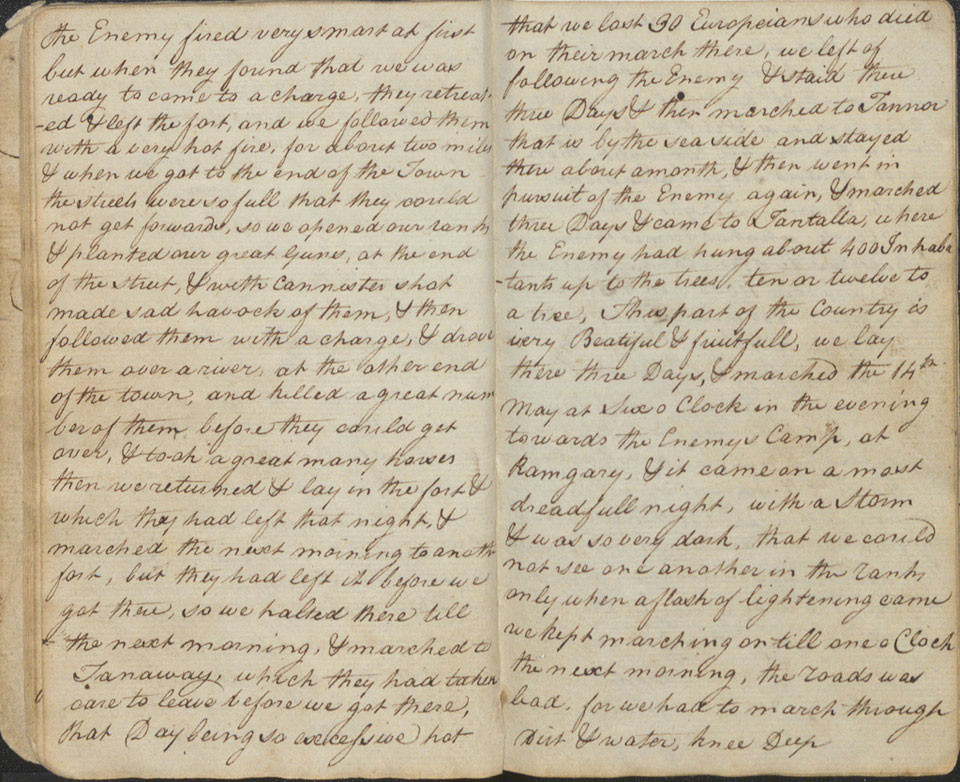 the Enemy fired very smart at first
but when they found that we was
ready to come to a charge, they retreat-
-ed & left the fort, and we followed them
with a very hot fire, for about two miles
& when we got to the end of the Town
the streets were so full that they could
not get forwards, so we opened our ranks
& planted our great Guns, at the end
of the street, & with Cannister shot
made sad havock of them, & then
followed them with a charge, & drove
them over a river, at the other end
of the town, and killed a great num
ber of them before they could get
over, & took a great many horses
then we returned & lay in the fort &
which they had left that night, &
marched the next morning to anoth
fort, but they had left it before we
got there, so we halted there till
the next morning, & marched to
Tanaway, which they had taken
care to leave before we got there,
that Day being so excessive hot
that we lost 30 Europeians who died
on their march there, we left of
following the Enemy & staid there
three Days & then marched to Tannor
that is by the sea side and stayed
there about a month, & then went in
pursuit of the Enemy again, & marched
three Days & came to Tantalla, where
the Enemy had hung about 400 Inhabi
-tants up to the trees, ten or twelve to
a tree, This part of the Country is
very Beatiful & fruitfull, we lay
there three Days, & marched the 14th
May at Six o Clock in the evening
towards the Enemys Camp, at
Ramgary, & it came on a most
dreadfull night, with a Storm
& was so very dark, that we could
not see one another in the ranks
only when a flash of lightening came
we kept marching on till one o Clock
the next morning, the roads was
bad, for we had to march through
Dirt & water, knee Deep